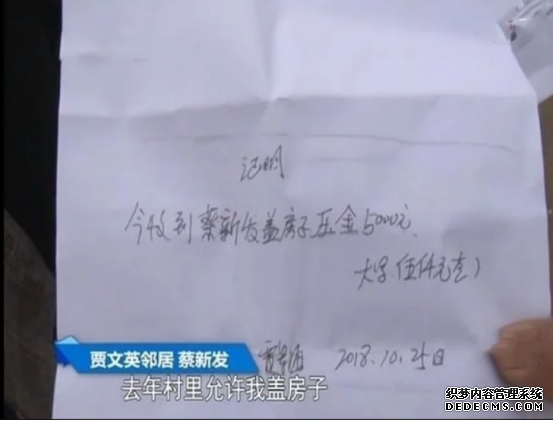 证明
今收到蔡新发盖房子压金5000元.
大写(伍仟元
2018.10.25日
贾文英邻居 蔡新发
去年村里允许我盖房子
织梦内容管理系统
DEDECMS.COM